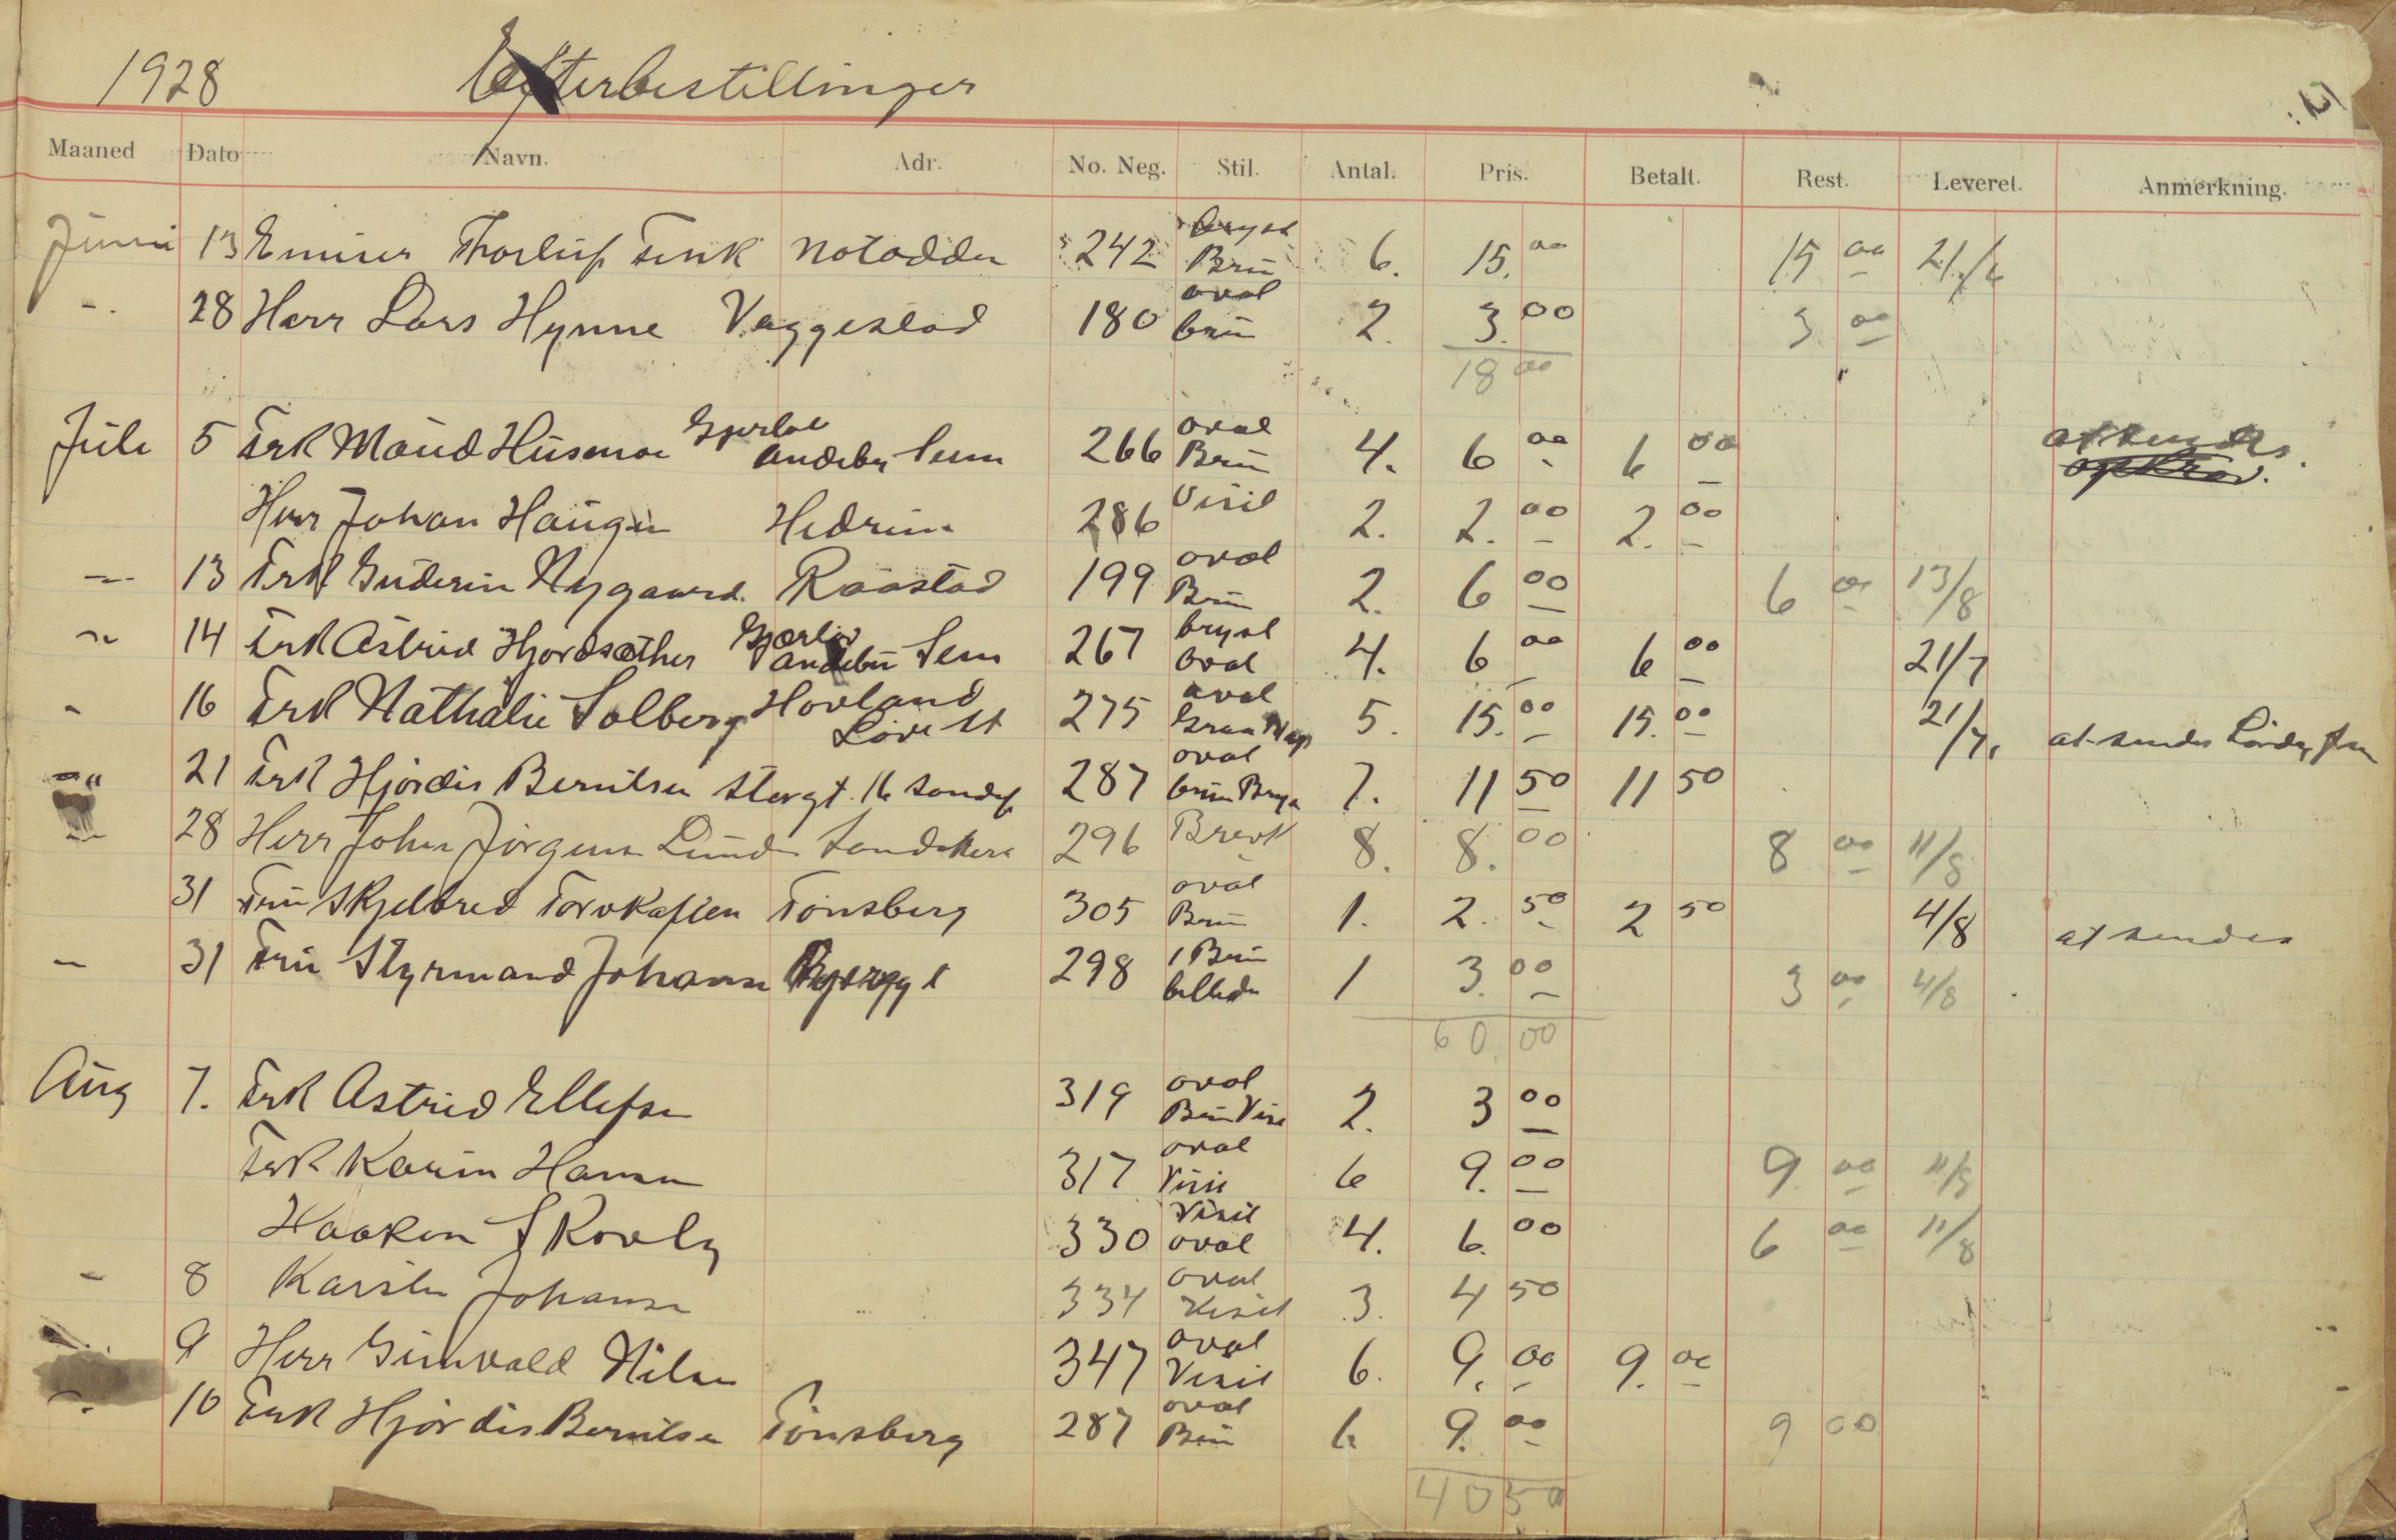 1928 Efterbestillinger
Maaned Dato Navn. Adr. No. Neg. Stil. Antal. Pris. Betalt. Rest. Leveret. Anmerkning.
Juni 13 Thorleif Fink Notodden 242 Bryst Brun 6. 15.00 15 00 21/6
" 28 Herr Lars Hynne Væggestad 180 oval brun 2. 3.00 3 00
18 00
Juli 5 Frk Maud Husmoe Andebu Sem 266 oval Brun 4. 6 00 6 00 at sendes. opkrav.
Herr Johan Haugen Hedrum 286 Visit 2. 2.00 2.00
" 13 Frk Guderun Nygaard. Raastad 199 oval Brun 2. 6 00 6 00 13/8
" 14 Frk Astrid Hjordsæther Andebu Sem 267 bryst oval 4. 6 00 6 00 21/7
" 16 Frk Nathalie Solberg Hovland Love St 275 oval 5. 15.00 15.00 21/7. at sendes
" 21 Frk Hjördis Berntsen Storgt. 16 Sandef 287 oval brun 7. 11 50 11 50
" 28 Herr John Jörgensen Lund 296 Brevk 8. 8.00 8 00 11/8
31 Fru Skjelbred Torvkafeen Tönsberg 305 oval Brun 1. 2.50 2 50 4/8 at sendes
" 31 Fru Styrmand Johansen 298 1 Brun billede 1 3.00 3 00 4/8
60.00
Aug 7. Frk Astrid Ellefsen 319 oval Brun Visi 2. 3 00
Frk Karin Hansen 317 oval Visit 6 9.00 9 00 11/8
Haakon Skovly 330 Visit oval 4. 6.00 6 00 11/8
" 8 Karsten Johansen 334 oval Visit 3. 4 50
9 Herr Gunvald Nilsen 347 oval Visit 6. 9.00 9.00
" 10 Frk Hjördis Berntsen Tönsberg 287 oval Brun 6 9.00 9 00
40 50